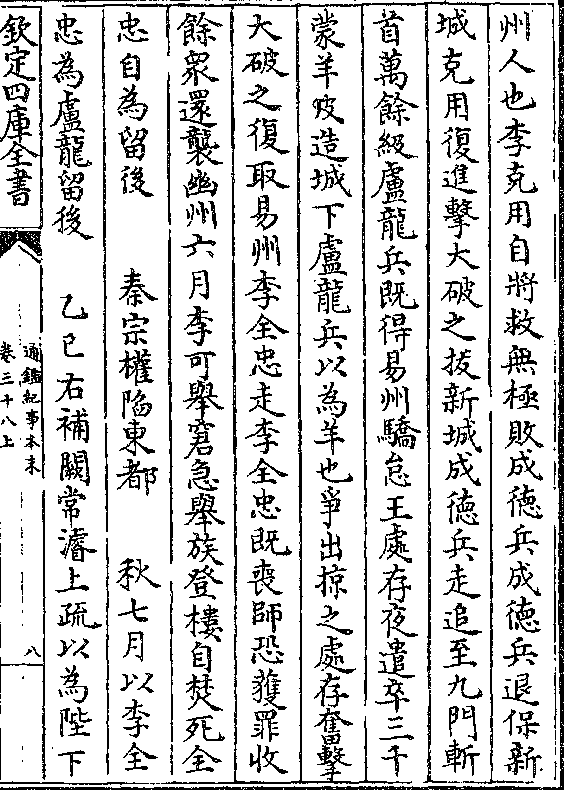 州人也李克用自將救無極敗成徳兵成徳兵退保新
城克用復進擊大破之拔新城成徳兵走追至九門斬
首萬餘級盧龍兵既得易州驕怠王處存夜遣卒三千
蒙羊皮造城下盧龍兵以為羊也爭出掠之處存奮擊
大破之復取易州李全忠走李全忠既喪師恐獲罪收
餘衆還襲幽州六月李可舉窘急舉族登樓自焚死全
忠自為留後　秦宗權陷東都　秋七月以李全
忠為盧龍留後　乙巳右補闕常濬上疏以為陛下
欽定四庫全書
通鑑紀事本末
卷三十八上
八